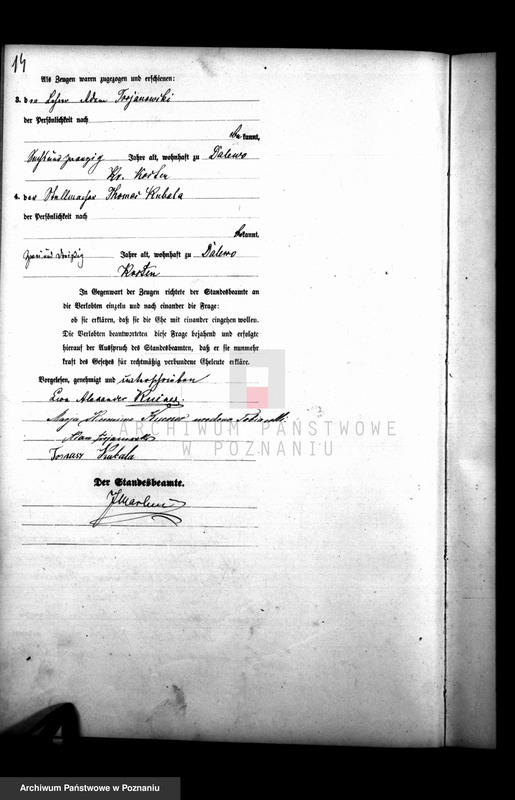 14
Als Zeugen waren zugezogen und erschienen:
3. der Lehrer Adam Trojanowski
der Persönlichkeit nach
bekannt,
Sechsundzwanzig Jahre alt, wohnhaft zu Dalewo
Kr. Kosten
4. der Stellmacher Thomas Kubala
der Persönlichkeit nach
bekannt.
Jahre alt, wohnhaft zu Dalewo
Kosten
In Gegenwart der Zeugen richtete der Standesbeamte an
die Verlobten einzeln und nach einander die Frage:
ob sie erklären, daß sie die Ehe mit einander eingehen wollen.
Die Verlobten beantworteten diese Frage bejahend und erfolgte
hierauf der Ausspruch des Standesbeamten, daß er sie nunmehr
kraft des Gesetzes für rechtmäßig verbundene Eheleute erkläre.
Vorgelesen, genehmigt und unterschrieben
Leon Alexander
Marya
Adam Trojanowski
Tomasz Kubala
Der Standesbeamte.
ARCHIWUM PAŃSTWOWE
W POZNANIU
Archiwum Państwowe w Poznaniu